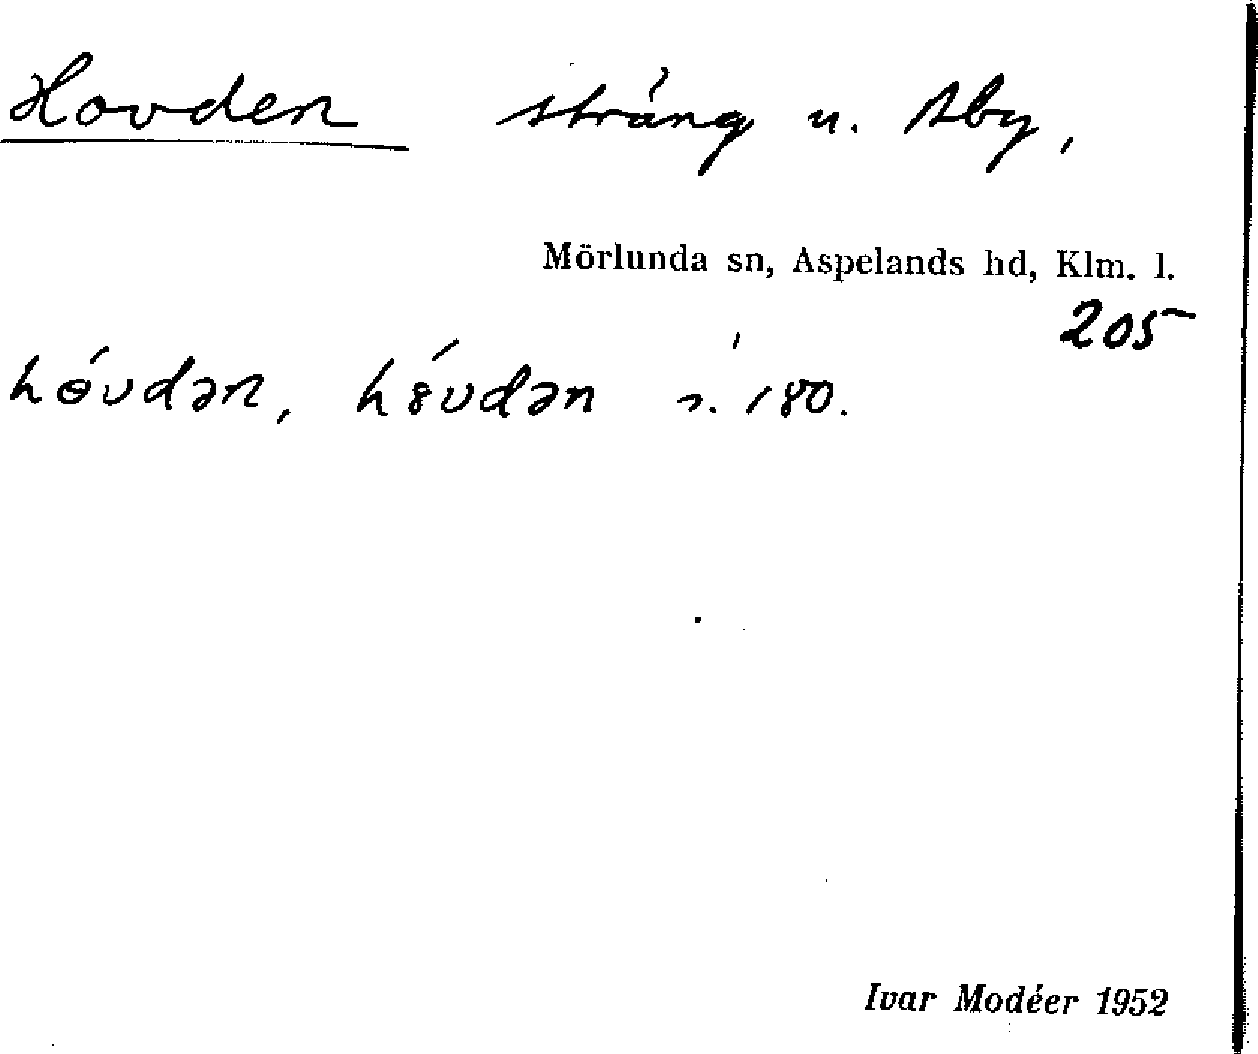 Hovden sträng u. Åby,
Mörlunda sn, Aspelands hd, Klm. l.
205
hǿvdən, hɞ́vdən s. 180.
Ivar Modéer 1952